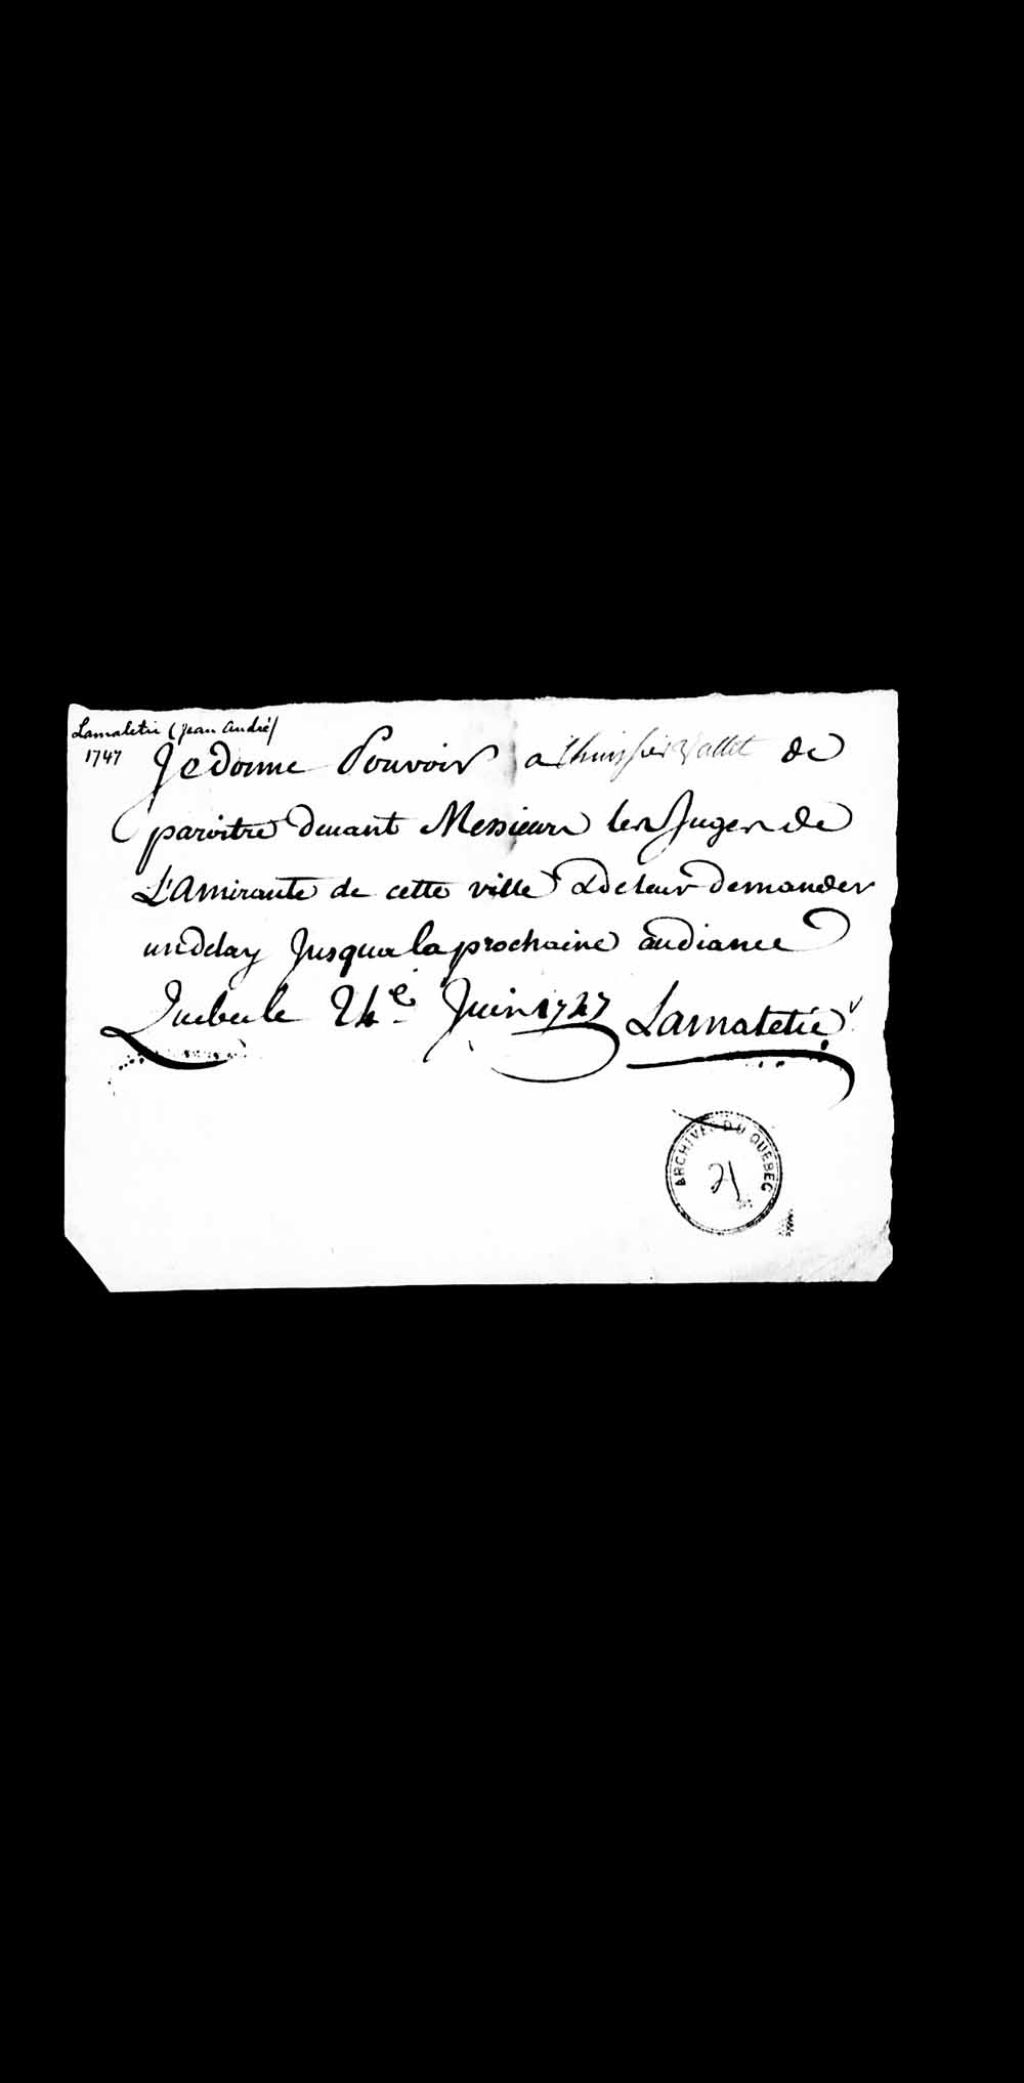 Lamaletie (Jean André)
1747
Je donne Pouvoir a lhuissier Vallet de
paroitre devant Messieurs les Juges de
L'Amirauté de cette ville & de leur demander
un delay Jusqua la prochaine audiance
Quebec le 24e Juin 1747 Lamaletie
ARCHIVES DU QUÉBEC